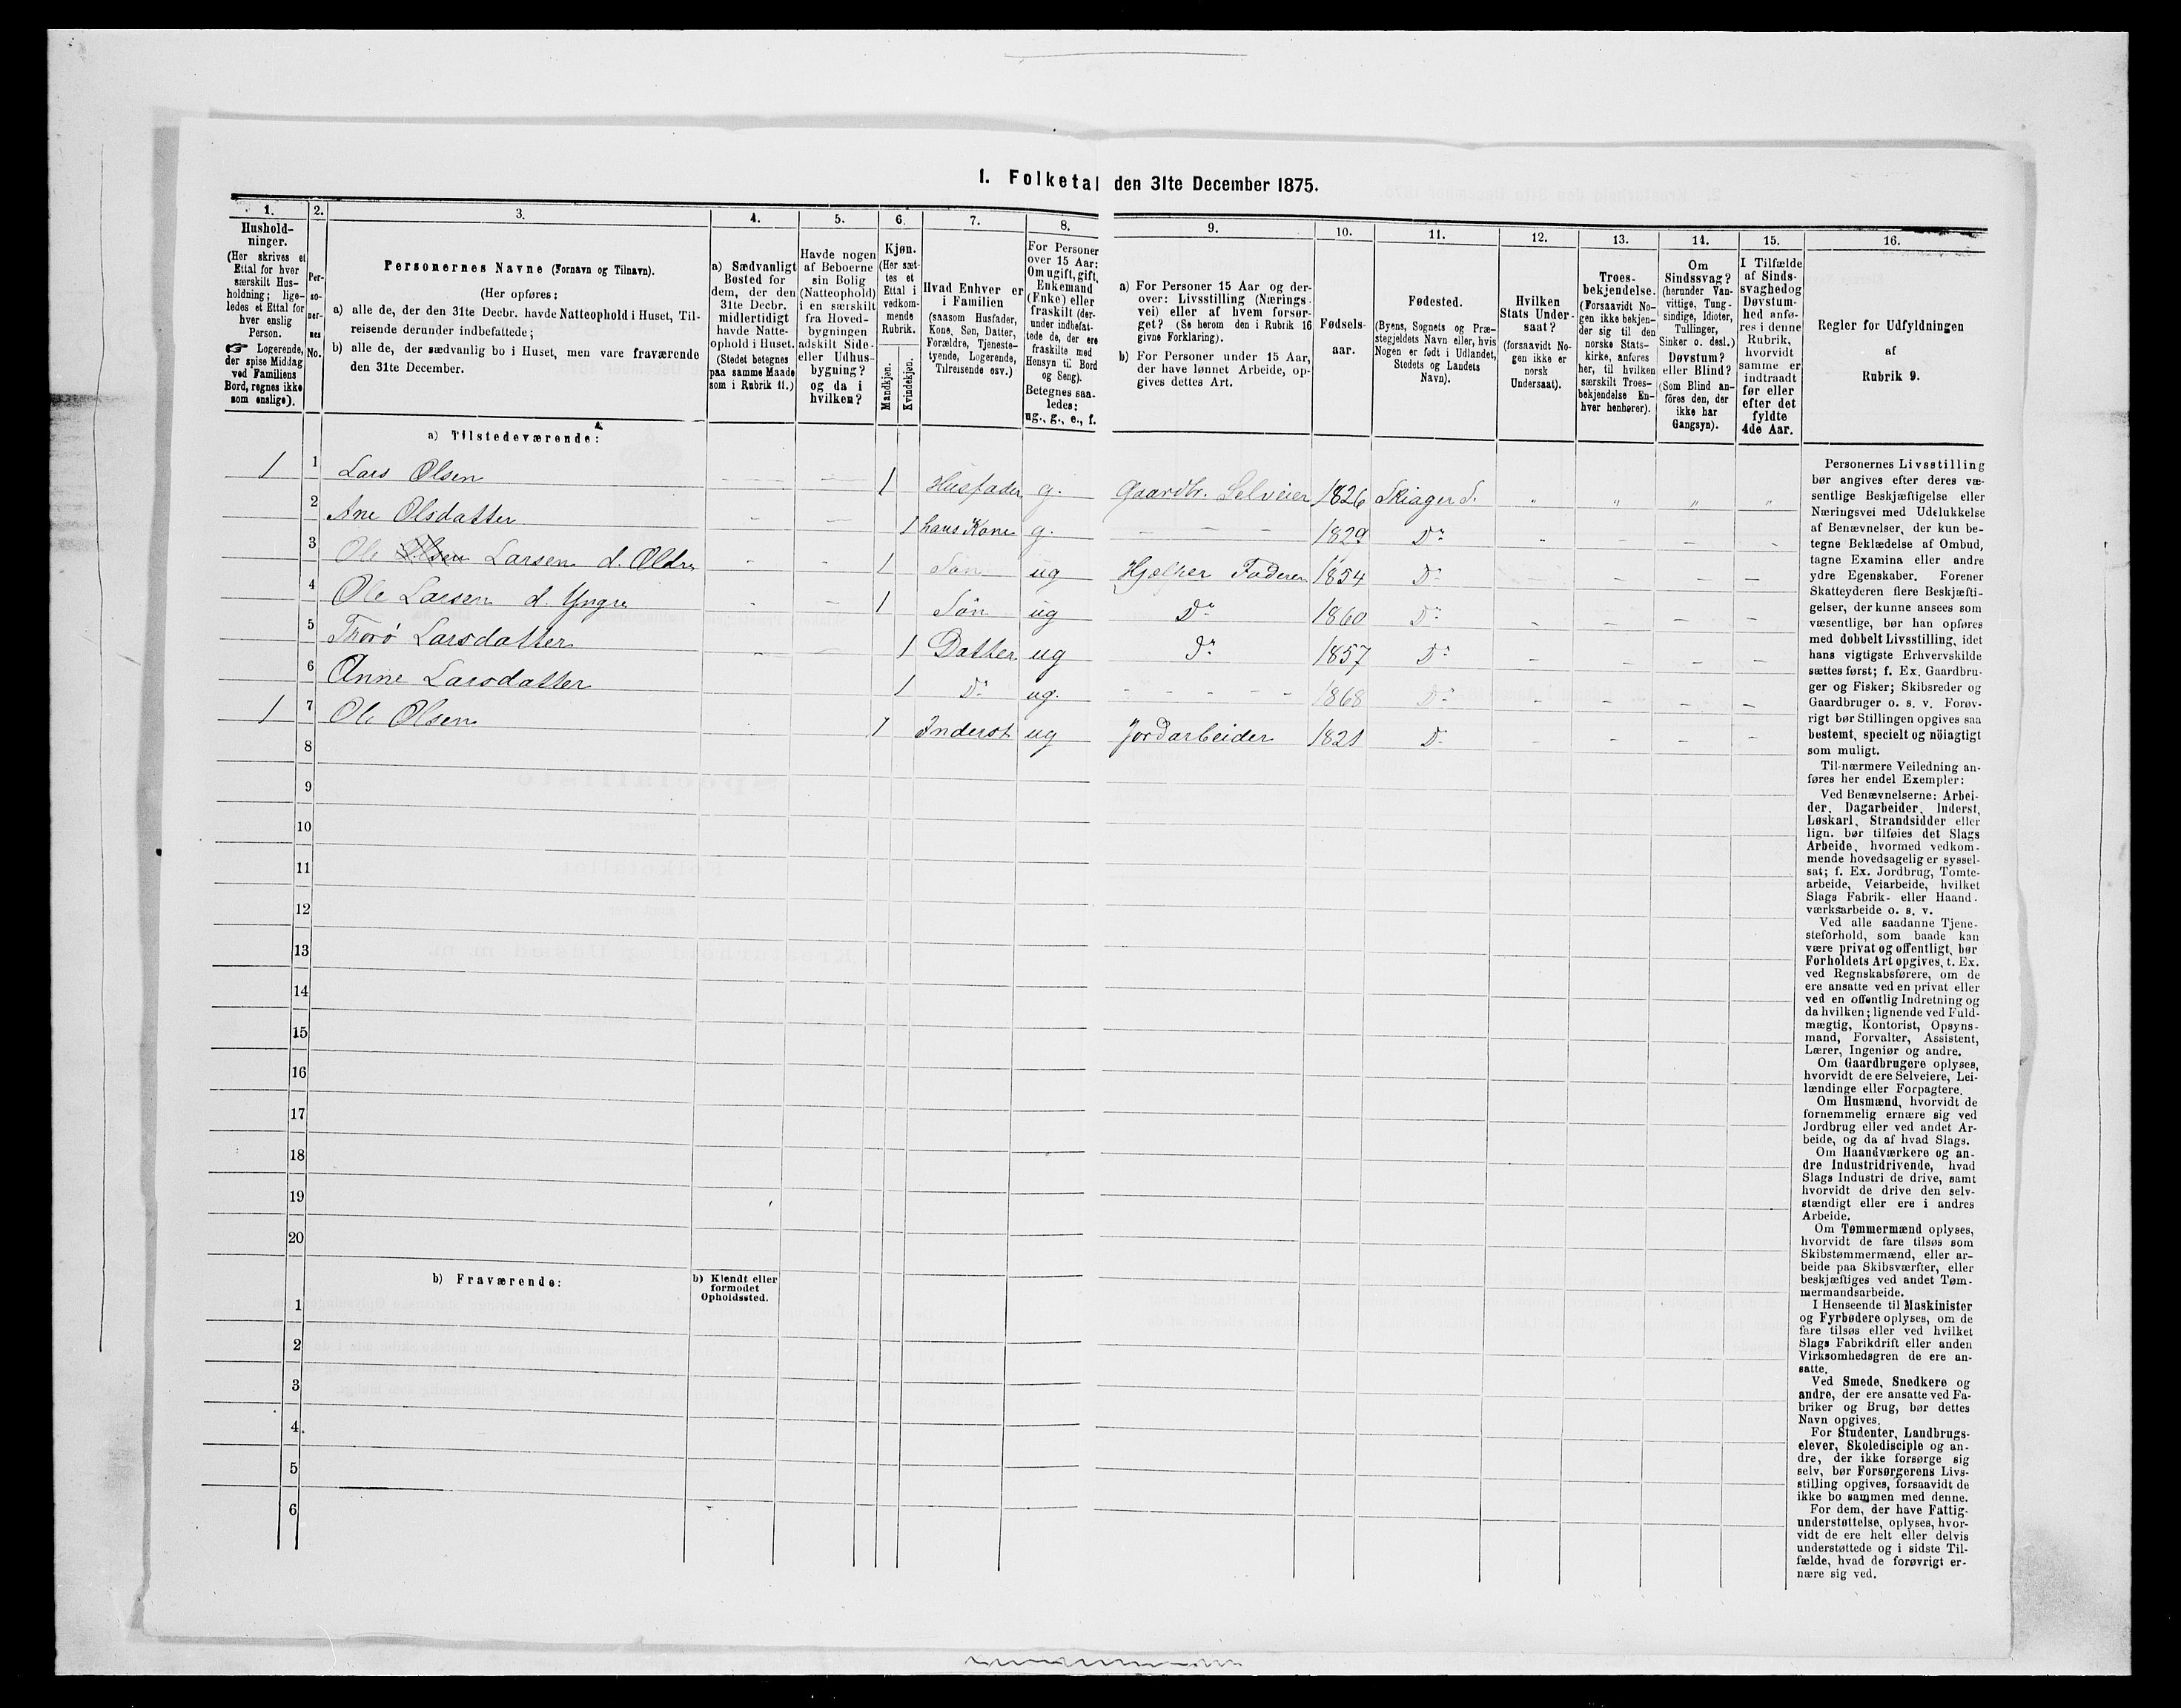 1. Folketal den 31te December 1875.
1. 2. 3. 4. 5. 6. 7. 8. 9. 10. 11. 12. 13. 14. 15. 16.
Hushold-
ninger.
(Her skrives et
Ettal for hver
særskilt Hus-
holdning; lige-
ledes et Ettal for
hver enslig
Person.
☞ Logerende,
der spise Middag
ved Familiens
Bord, regnes ikke
som enslige).
Per-
so-
ner-
nes
No.
Personernes Navne (Fornavn og Tilnavn).
(Her opføres:
a) alle de, der den 31te Decbr. havde Natteophold i Huset, Til-
reisende derunder indbefattede;
b) alle de, der sædvanlig bo i Huset, men vare fraværende
den 31te December.
a) Sædvanligt
Bosted for
dem, der den
31te Decbr.
midlertidigt
havde Natte-
ophold i Huset.
(Stedet betegnes
paa samme Maade
som i Rubrik 11.)
Havde nogen
af Beboerne
sin Bolig
(Natteophold)
i en særskilt
fra Hoved-
bygningen
adskilt Side-
eller Udhus-
bygning?
og da i
hvilken?
Kjøn.
(Her sæt-
tes et
Ettal i
vedkom-
mende
Rubrik.
Mandkjøn.
Kvindekjøn.
Hvad Enhver er
i Familien
(saasom Husfader,
Kone, Søn, Datter,
Forældre, Tjeneste-
tyende, Logerende,
Tilreisende osv.)
For Personer
over 15 Aar:
Om ugift, gift,
Enkemand
(Enke) eller
fraskilt (der-
under indbefat-
tede de, der ere
fraskilte med
Hensyn til Bord
og Seng).
Betegnes saa-
ledes:
ug., g., e., f.
a) For Personer 15 Aar og der-
over: Livsstilling (Nærings-
vei) eller af hvem forsør-
get? (Se herom den i Rubrik 16
givne Forklaring).
b) For Personer under 15 Aar,
der have lønnet Arbeide, op-
gives dettes Art.
Fødsels-
aar.
Fødested.
(Byens, Sognets og Præ-
stegjeldets Navn eller, hvis
Nogen er født i Udlandet,
Stedets og Landets
Navn).
Hvilken
Stats Under-
saat?
(forsaavidt No-
gen ikke er
norsk
Undersaat).
Troes-
bekjendelse.
(Forsaavidt No-
gen ikke bekjen-
der sig til den
norske Stats-
kirke, anføres
her, til hvilken
særskilt Troes-
bekjendelse En-
hver henhører).
Om
Sindssvag?
(herunder Van-
vittige, Tung-
sindige, Idioter,
Tullinger,
Sinker o. desl.)
Døvstum?
eller Blind?
(Som Blind an-
føres den, der
ikke har
Gangsyn).
I Tilfælde
af Sinds-
svaghed og
Døvstum-
hed anfø-
res i denne
Rubrik,
hvorvidt
samme er
indtraadt
før eller
efter det
fyldte
4de Aar.
Regler for Udfyldningen
af
Rubrik 9.
a) Tilstedeværende:
1 1 Lars Olsen 1 Husfader g. Gaardbr. Selveier 1826 Skiager S.
2 Ane Olsdatter 1 hans Kone g. 1829 Do
3 Ole Olsen Larsen d. Oldre 1 Søn ug Hjelper Faderen 1854 Do
4 Ole Larsen d. Yngre 1 Søn ug Do 1860 Do
5 Thorø Larsdatter 1 Datter ug Do 1857 Do
6 Anne Larsdatter 1 Do ug. 1868 Do
1 7 Ole Olsen 1 Inderst ug Jordarbeider 1821 Do
8
9
10
11
12
13
14
15
16
17
18
19
20
b) Fraværende:
b) Kjendt eller
formodet
Opholdssted.
1
2
3
4
5
6
Personernes Livsstilling
bør angives efter deres væ-
sentlige Beskjæftigelse eller
Næringsvei med Udelukkelse
af Benævnelser, der kun be-
tegne Beklædelse af Ombud,
tagne Examina eller andre
ydre Egenskaber. Forener
Skatteyderen flere Beskjæfti-
gelser, der kunne ansees som
væsentlige, bør han opføres
med dobbelt Livsstilling, idet
hans vigtigste Erhvervskilde
sættes først; f. Ex. Gaardbru-
ger og Fisker; Skibsreder og
Gaardbruger o. s. v. Forøv-
rigt bør Stillingen opgives saa
bestemt, specielt og nöiagtigt
som muligt.
Til nærmere Veiledning an-
føres her endel Exempler:
Ved Benævnelserne: Arbei-
der, Dagarbeider, Inderst,
Løskarl, Strandsidder eller
lign. bør tilføies det Slags
Arbeide, hvormed vedkom-
mende hovedsagelig er syssel-
sat; f. Ex. Jordbrug, Tomte-
arbeide, Veiarbeide, hvilket
Slags Fabrik- eller Haand-
værksarbeide o. s. v.
Ved alle saadanne Tjene-
steforhold, som baade kan
være privat og offentligt, bør
Forholdets Art opgives, t. Ex.
ved Regnskabsførere, om de
ere ansatte ved en privat eller
ved en offentlig Indretning og
da hvilken; lignende ved Fuld-
mægtig, Kontorist, Opsyns-
mand, Forvalter, Assistent,
Lærer, Ingeniør og andre.
Om Gaardbrugere oplyses,
hvorvidt de ere Selveiere, Lei-
lændinge eller Forpagtere.
Om Husmænd, hvorvidt de
fornemmelig ernære sig ved
Jordbrug eller ved andet Ar-
beide, og da af hvad Slags.
Om Haandværkere og an-
dre Industridrivende, hvad
Slags Industri de drive, samt
hvorvidt de drive den selv-
stændigt eller ere i andres
Arbeide.
Om Tømmermænd oplyses,
hvorvidt de fare tilsøs som
Skibstømmermænd, eller ar-
beide paa Skibsværfter, eller
beskjæftiges ved andet Tøm-
mermandsarbeide.
I Henseende til Maskinister
og Fyrbødere oplyses, om de
fare tilsøs eller ved hvilket
Slags Fabrikdrift eller anden
Virksomhedsgren de ere an-
satte.
Ved Smede, Snedkere og
andre, der ere ansatte ved Fa-
briker og Brug, bør dettes
Navn opgives.
For Studenter, Landbrugs-
elever, Skoledisciple og an-
dre, der ikke forsørge sig
selv, bør Forsørgerens Livs-
stilling opgives, forsaavidt de
ikke bo sammen med denne.
For dem, der have Fattig-
understøttelse, oplyses, hvor-
vidt de ere helt eller delvis
understøttede og i sidste Til-
fælde, hvad de forøvrigt er-
nære sig ved.